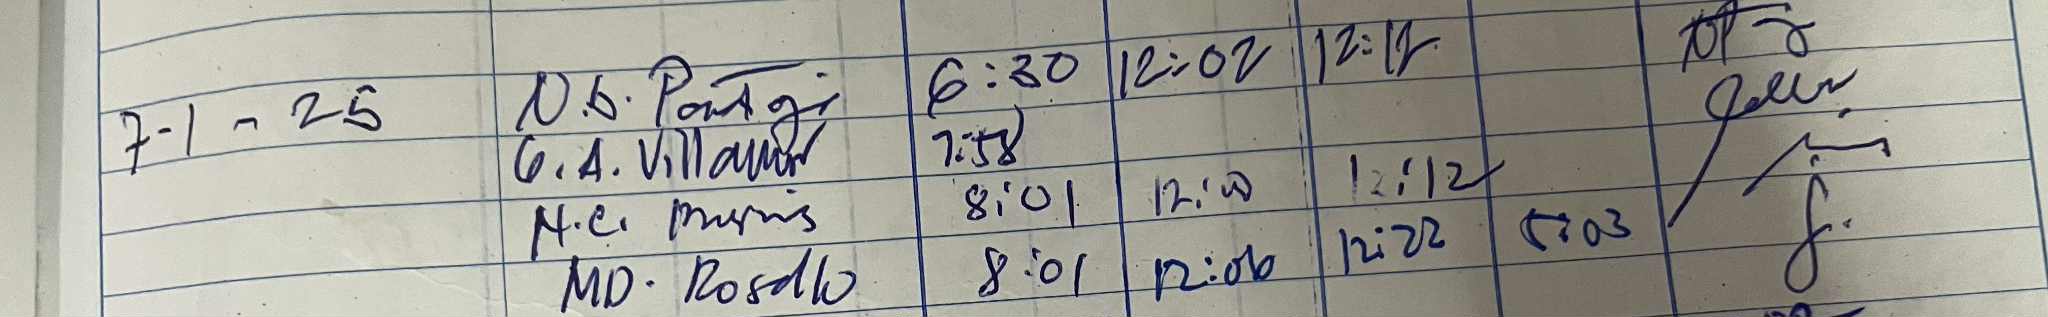 7-1-25 N.B. 6:30 12:02 12:12
G.A. Villamor 7:58
N.C. 8:01 12:00 12:12
MD. Rosello 8:01 12:06 12:22 5:03